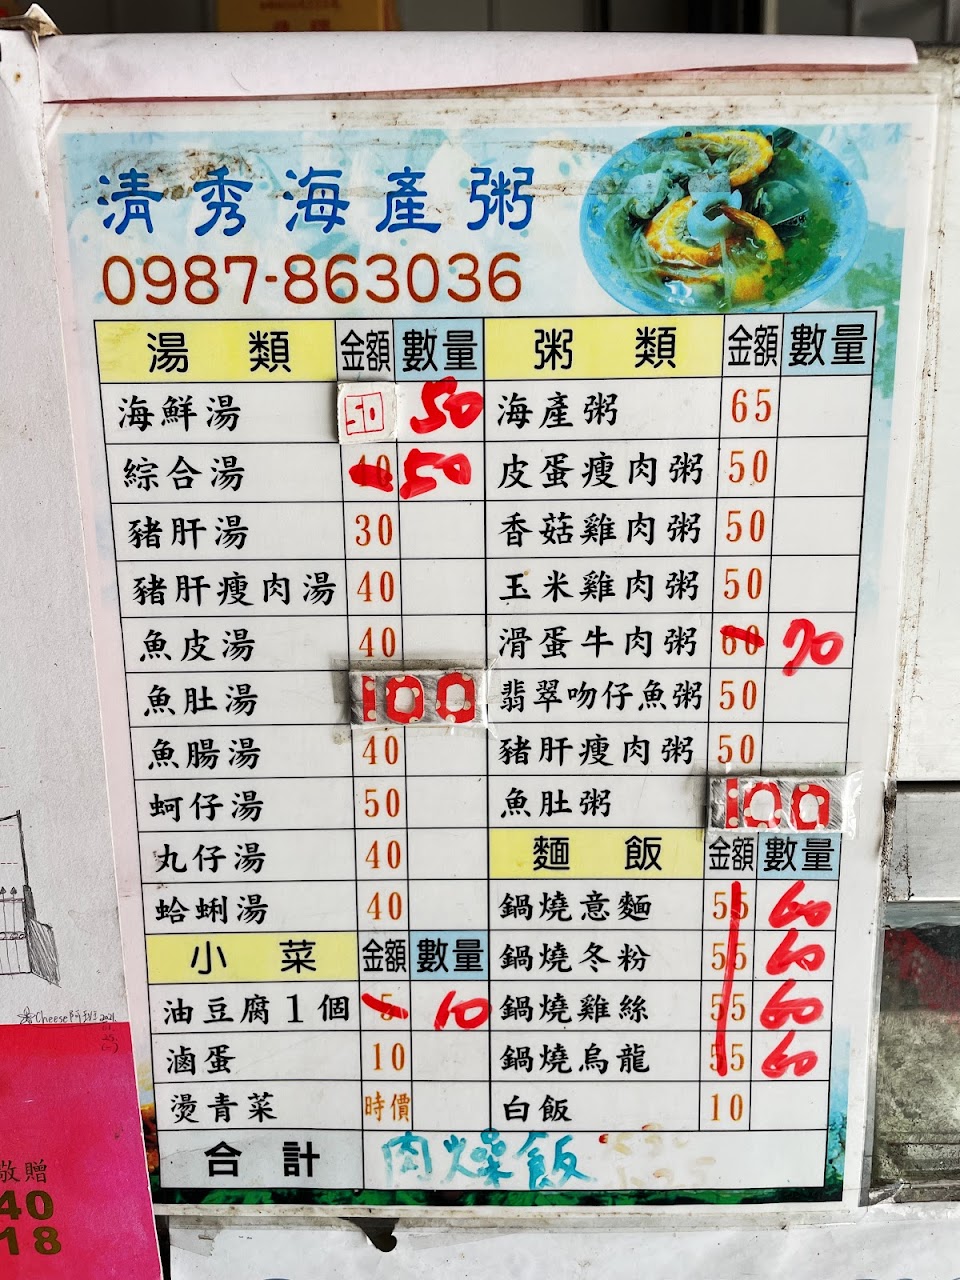 清秀海產粥
0987-863036
湯類 金額 數量
海鮮湯 50 50
綜合湯 40 50
豬肝湯 30
豬肝瘦肉湯 40
魚皮湯 40
魚肚湯 100
魚腸湯 40
蚵仔湯 50
丸仔湯 40
蛤蜊湯 40
小菜 金額 數量
油豆腐1個 5 10
滷蛋 10
燙青菜 時價
粥類 金額 數量
海產粥 65
皮蛋瘦肉粥 50
香菇雞肉粥 50
玉米雞肉粥 50
滑蛋牛肉粥 60 70
翡翠吻仔魚粥 50
豬肝瘦肉粥 50
魚肚粥 100
麵飯 金額 數量
鍋燒意麵 55 60
鍋燒冬粉 55 60
鍋燒雞絲 55 60
鍋燒烏龍 55 60
白飯 10
合計 肉燥飯
Cheese阿班 2021
敬贈
40
18